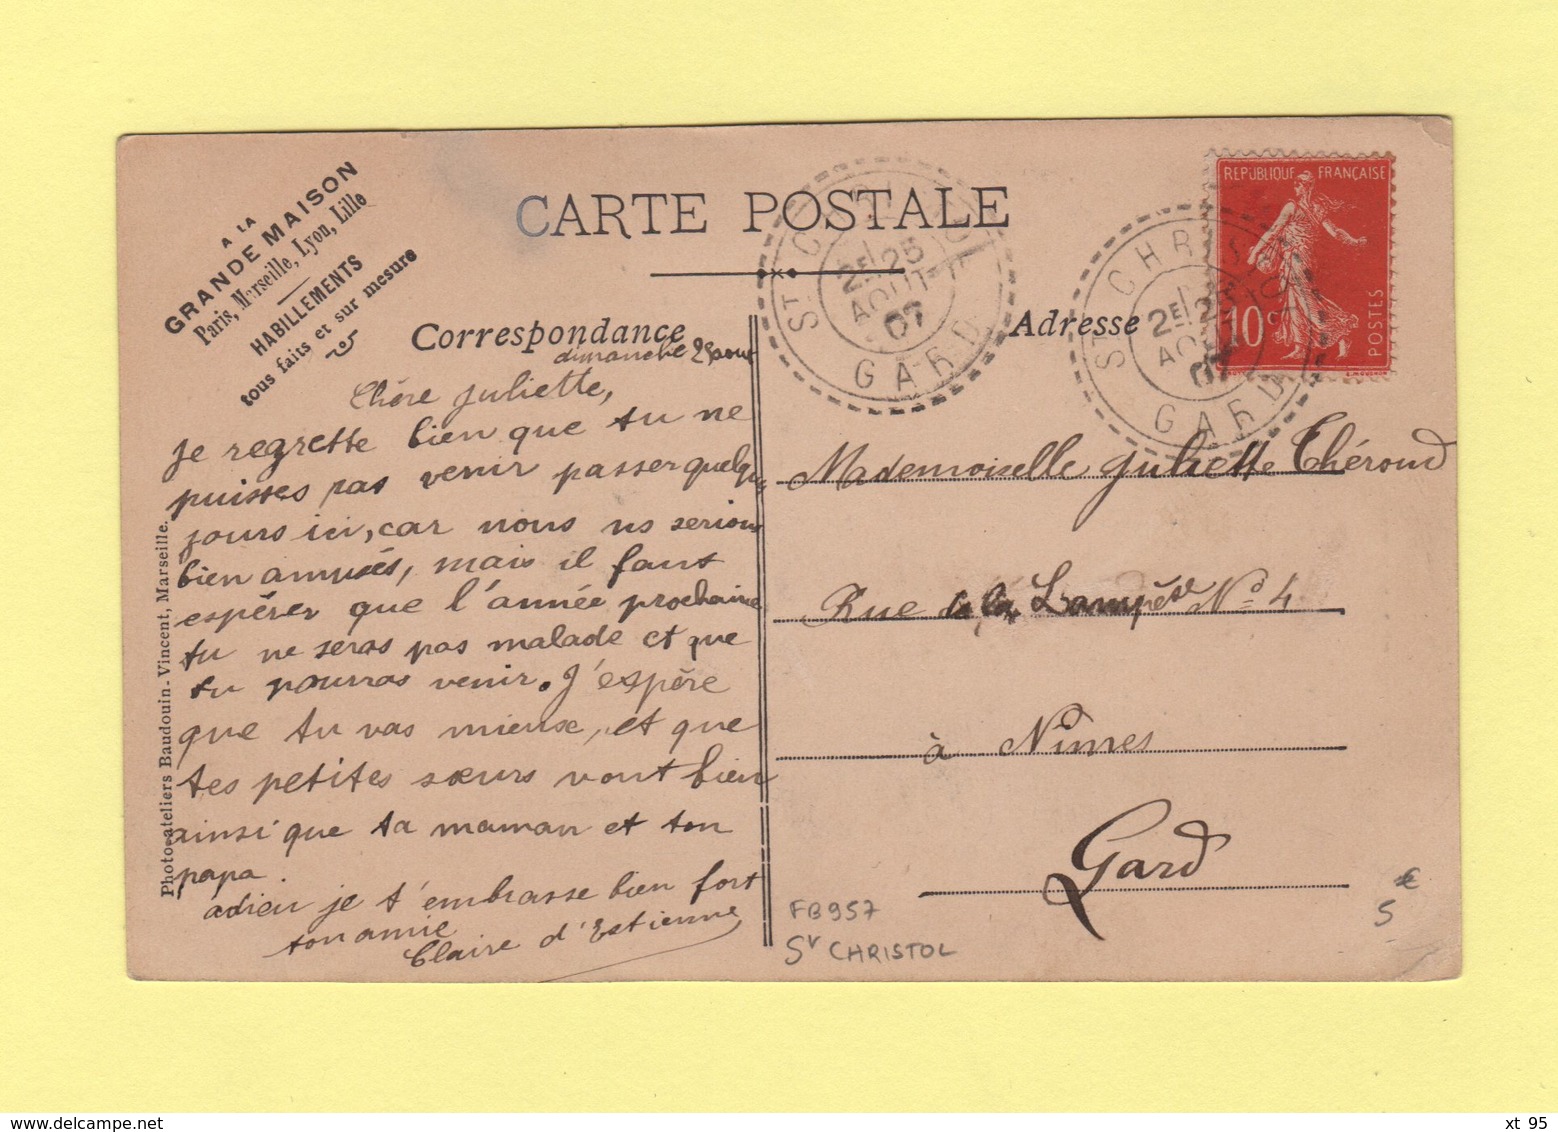 A LA
GRANDE MAISON
Paris, Marseille, Lyon, Lille
HABILLEMENTS
tous faits et sur mesure
CARTE POSTALE
Correspondance
Adresse
REPUBLIQUE FRANÇAISE
10 c
POSTES
ST CHRISTOL
2E 25
AOUT
07
GARD
ST CHRISTOL
2E 25
AOUT
07
GARD
dimanche 25 aout
Chère Juliette,
Je regrette bien que tu ne
puisses pas venir passer quelques
jours ici, car nous ns serions
bien amusés, mais il faut
espérer que l'année prochaine
tu ne seras pas malade et que
tu pourras venir. J'espère
que tu vas mieux, et que
tes petites sœurs vont bien
ainsi que ta maman et ton
papa.
adieu je t'embrasse bien fort
ton amie
Claire d'Estienne
Mademoiselle Juliette Thérond
Rue de la Lampèze No 4
à Nîmes
Gard
FB957
St CHRISTOL
5
Photo-ateliers Baudouin-Vincent, Marseille.
xt 95